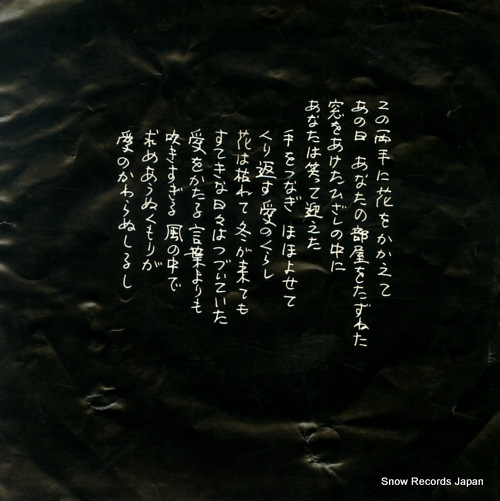 この両手に花をかかえて
あの日　あなたの部屋をたずねた
窓をあけたひざしの中に
あなたは笑って迎えた
手をつなぎ　ほほよせて
くり返す愛のくらし
花は枯れて冬が来ても
すてきな日々はつづいていた
愛をかたる言葉よりも
吹きすぎる風の中で
求めあうぬくもりが
愛のかわらぬしるし
Snow Records Japan